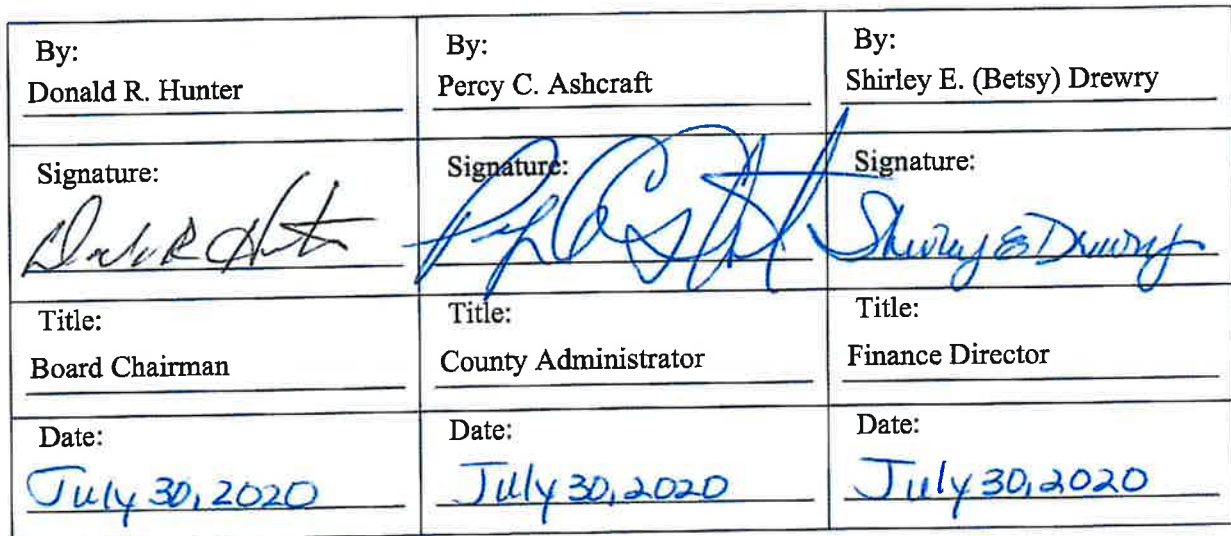 By:
Donald R. Hunter
By:
Percy C. Ashcraft
By:
Shirley E. (Betsy) Drewry
Signature:
Signature:
Signature:
Shirley E Drewry
Title:
Board Chairman
Title:
County Administrator
Title:
Finance Director
Date:
July 30, 2020
Date:
July 30, 2020
Date:
July 30, 2020